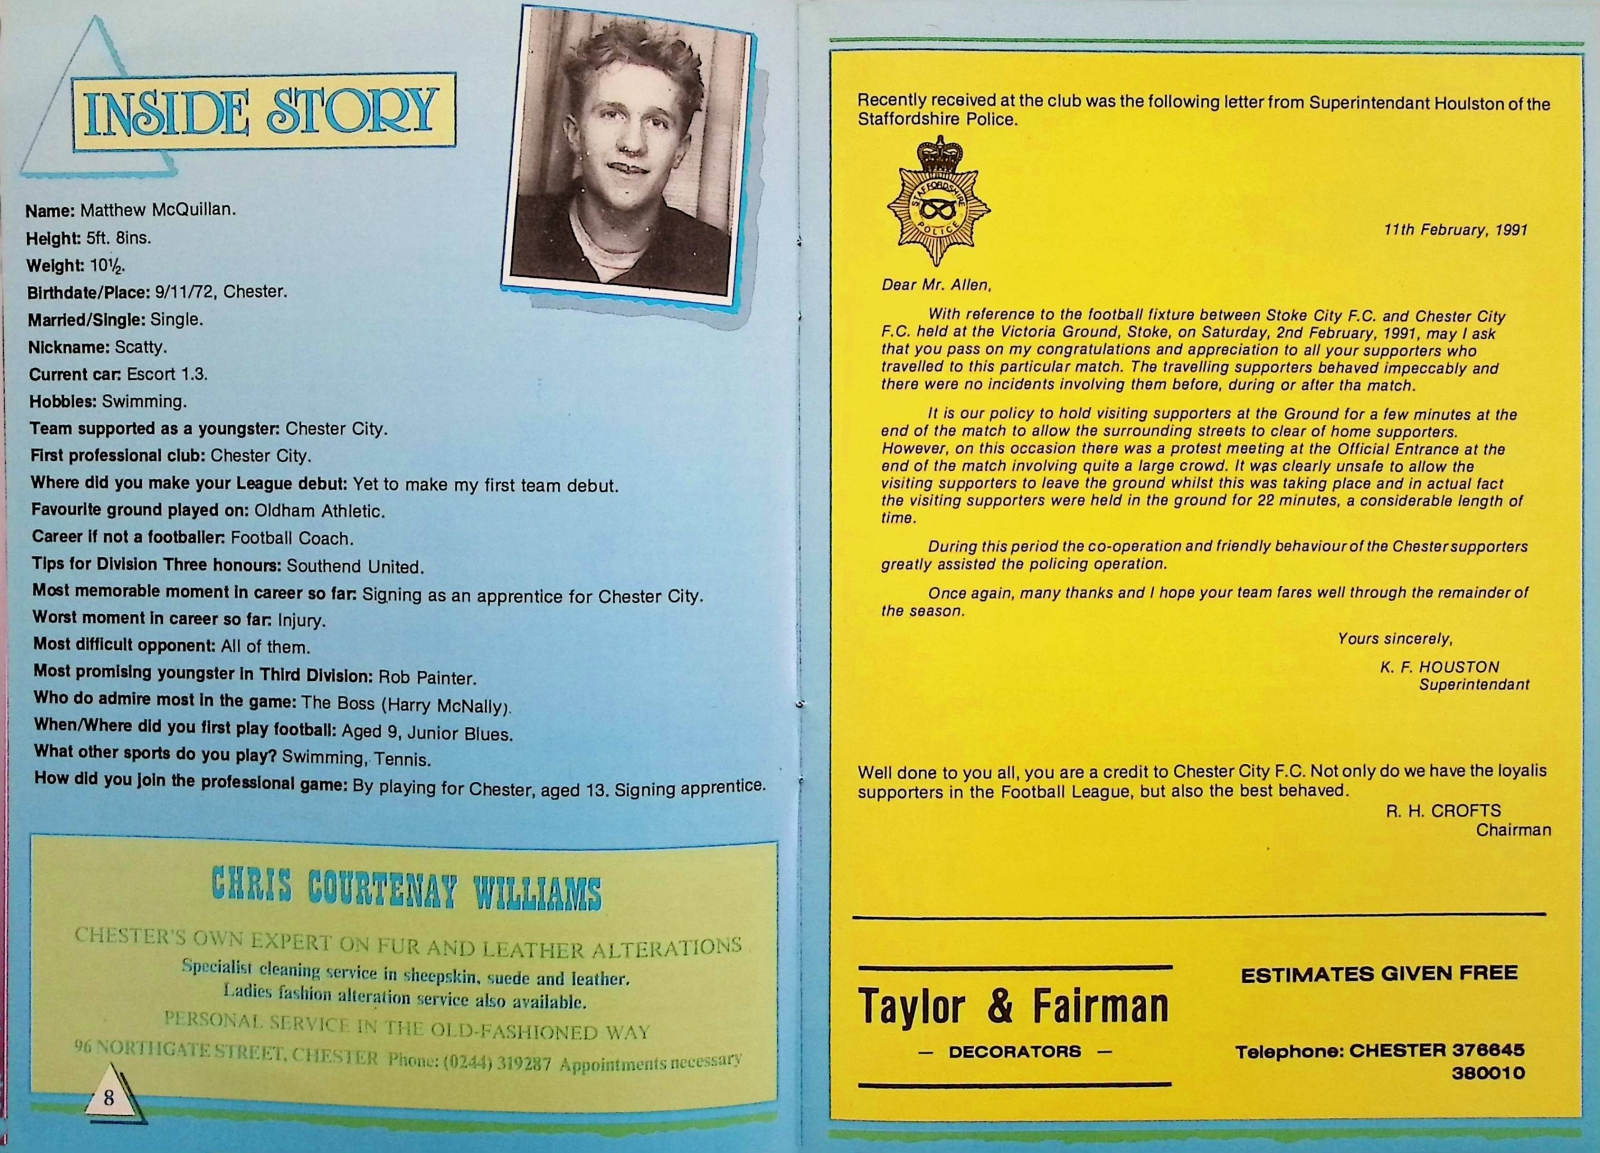 INSIDE STORY
Name: Matthew McQuillan.
Height: 5ft. 8ins.
Weight: 10½.
Birthdate/Place: 9/11/72, Chester.
Married/Single: Single.
Nickname: Scatty.
Current car: Escort 1.3.
Hobbies: Swimming.
Team supported as a youngster: Chester City.
First professional club: Chester City.
Where did you make your League debut: Yet to make my first team debut.
Favourite ground played on: Oldham Athletic.
Career if not a footballer: Football Coach.
Tips for Division Three honours: Southend United.
Most memorable moment in career so far: Signing as an apprentice for Chester City.
Worst moment in career so far: Injury.
Most difficult opponent: All of them.
Most promising youngster in Third Division: Rob Painter.
Who do admire most in the game: The Boss (Harry McNally).
When/Where did you first play football: Aged 9, Junior Blues.
What other sports do you play? Swimming, Tennis.
How did you join the professional game: By playing for Chester, aged 13. Signing apprentice.
CHRIS COURTENAY WILLIAMS
CHESTER'S OWN EXPERT ON FUR AND LEATHER ALTERATIONS
Specialist cleaning service in sheepskin, suede and leather.
Ladies fashion alteration service also available.
PERSONAL SERVICE IN THE OLD-FASHIONED WAY
96 NORTHGATE STREET, CHESTER Phone: (0244) 319287 Appointments necessary
8
Recently received at the club was the following letter from Superintendant Houlston of the
Staffordshire Police.
STAFFORDSHIRE
POLICE
11th February, 1991
Dear Mr. Allen,
With reference to the football fixture between Stoke City F.C. and Chester City
F.C. held at the Victoria Ground, Stoke, on Saturday, 2nd February, 1991, may I ask
that you pass on my congratulations and appreciation to all your supporters who
travelled to this particular match. The travelling supporters behaved impeccably and
there were no incidents involving them before, during or after tha match.
It is our policy to hold visiting supporters at the Ground for a few minutes at the
end of the match to allow the surrounding streets to clear of home supporters.
However, on this occasion there was a protest meeting at the Official Entrance at the
end of the match involving quite a large crowd. It was clearly unsafe to allow the
visiting supporters to leave the ground whilst this was taking place and in actual fact
the visiting supporters were held in the ground for 22 minutes, a considerable length of
time.
During this period the co-operation and friendly behaviour of the Chester supporters
greatly assisted the policing operation.
Once again, many thanks and I hope your team fares well through the remainder of
the season.
Yours sincerely,
K. F. HOUSTON
Superintendant
Well done to you all, you are a credit to Chester City F.C. Not only do we have the loyalis
supporters in the Football League, but also the best behaved.
R. H. CROFTS
Chairman
Taylor & Fairman
— DECORATORS —
ESTIMATES GIVEN FREE
Telephone: CHESTER 376645
380010